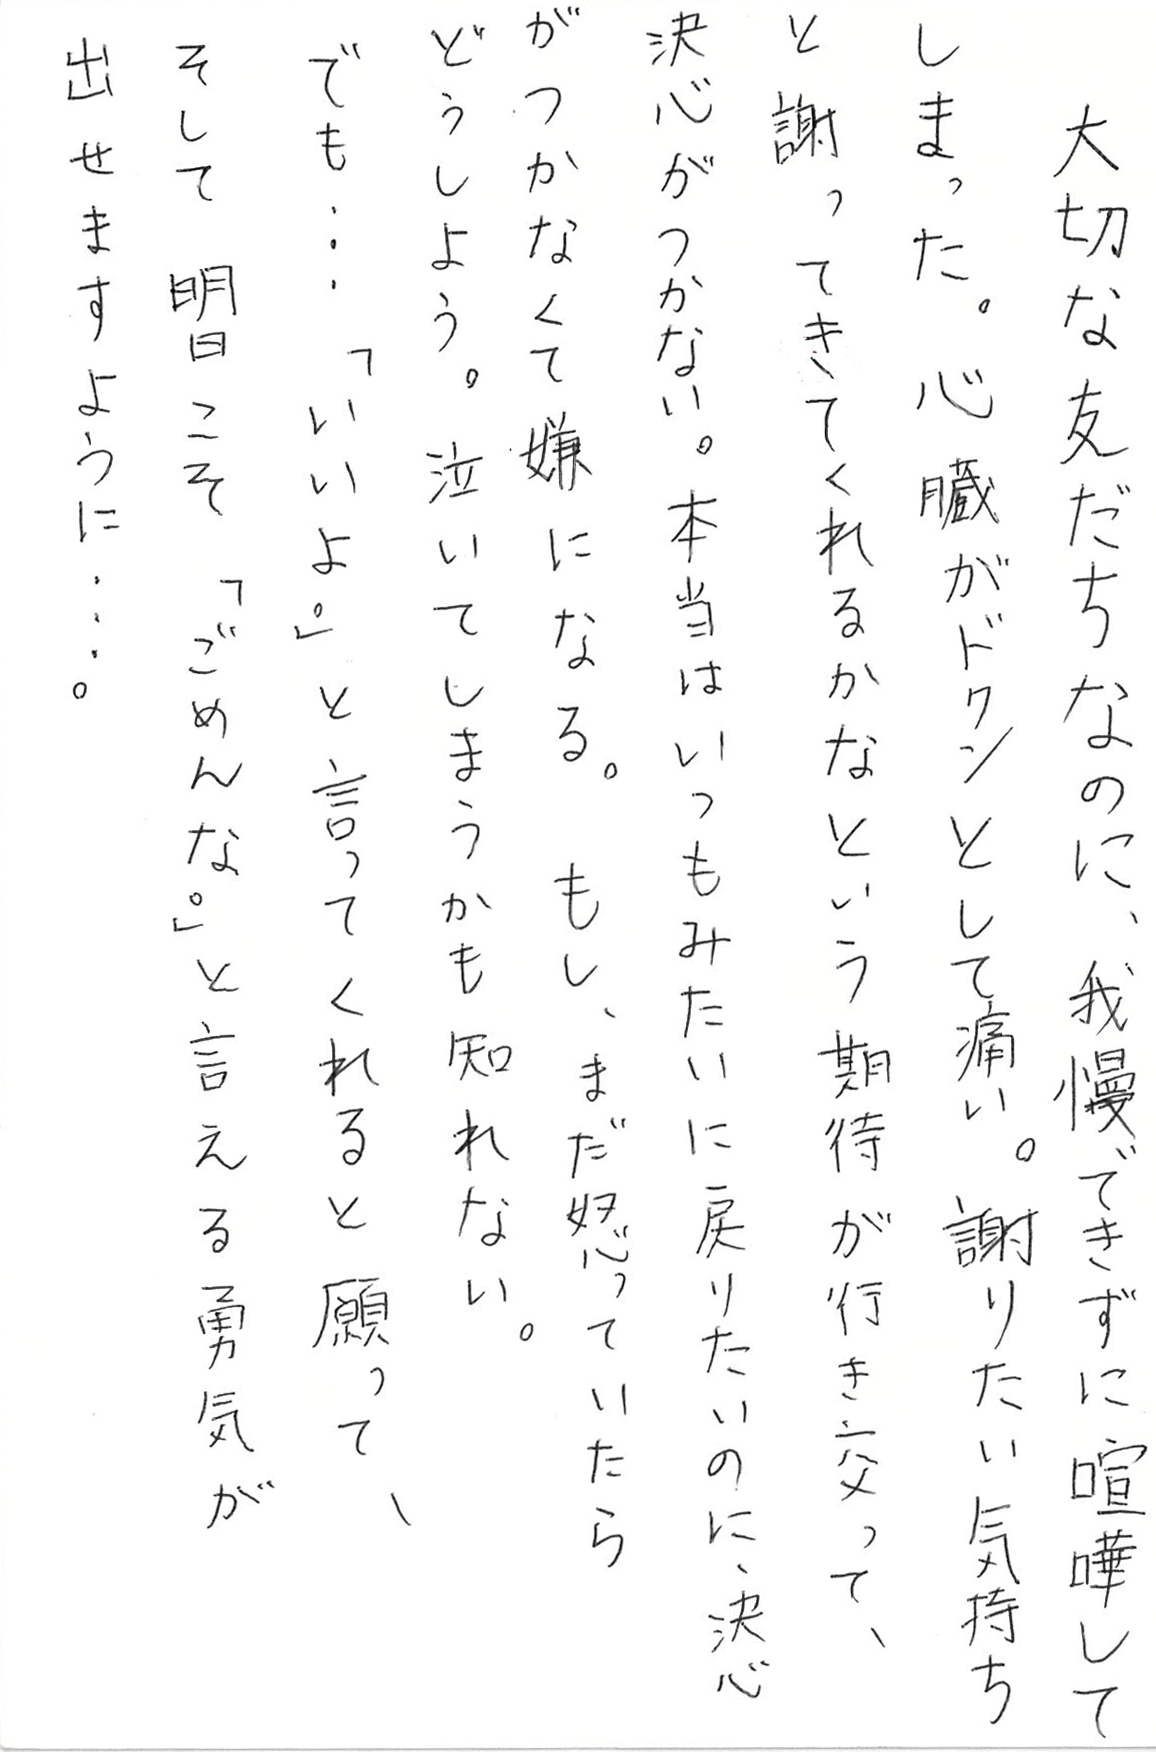 大切な友だちなのに、我慢できずに喧嘩して
しまった。心臓がドクンとして痛い。謝りたい気持ち
と謝ってきてくれるかなという期待が行き交って、
決心がつかない。本当はいつもみたいに戻りたいのに、決心
がつかなくて嫌になる。もし、まだ怒っていたら
どうしよう。泣いてしまうかも知れない。
でも…「いいよ。」と言ってくれると願って、
そして明日こそ「ごめんな。」と言える勇気が
出せますように…。